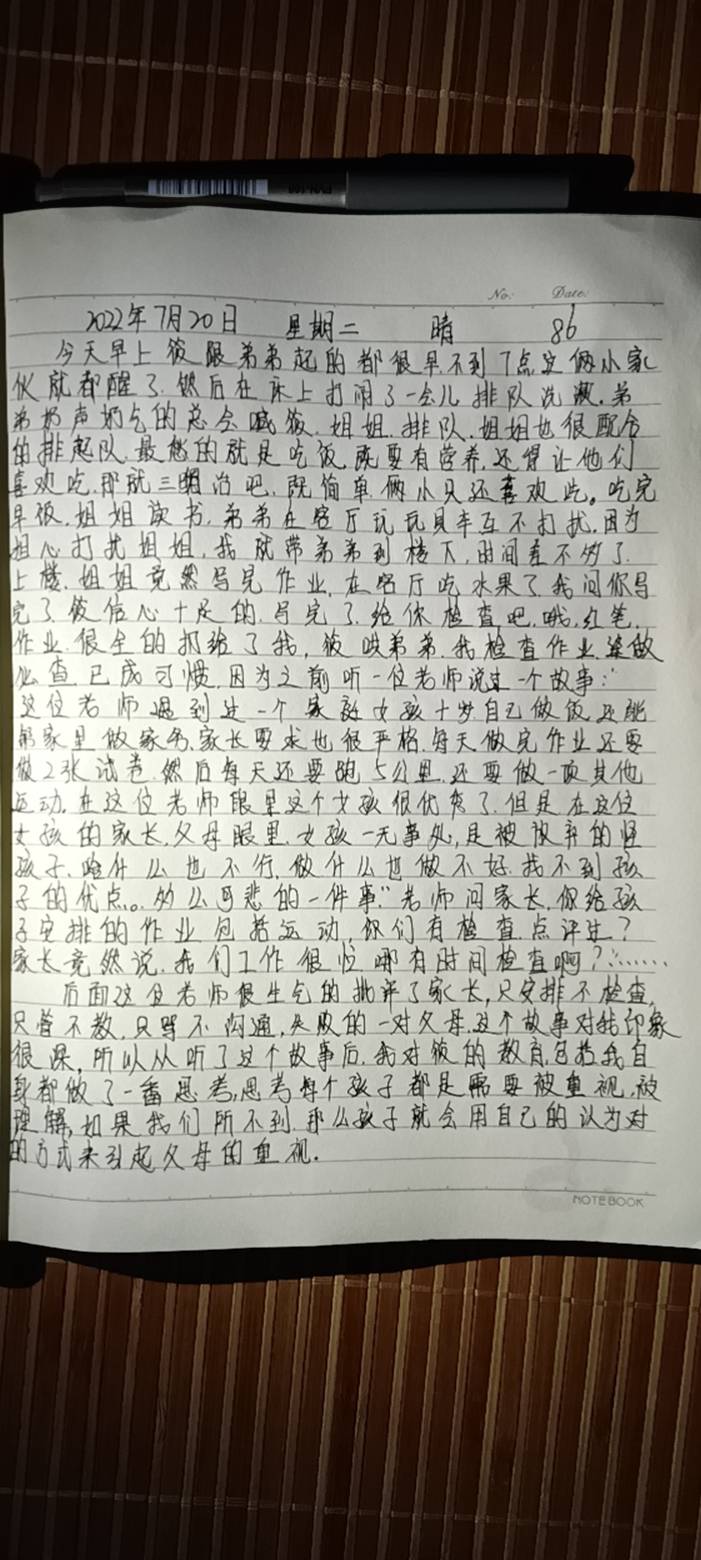 No. Date.
2022年7月20日 星期二 晴 86
今天早上筱跟弟弟起的都很早.不到7点这俩小家
伙就都醒了.然后在床上打闹了一会儿排队洗漱.弟
弟奶声奶气的总会喊筱.姐姐.排队.姐姐也很配合
的排起队.最愁的就是吃饭.既要有营养.还得让他们
喜欢吃.那就三明治吧.既简单.俩小只还喜欢吃。吃完
早饭.姐姐读书.弟弟在客厅玩玩具车互不打扰.因为
担心打扰姐姐,我就带弟弟到楼下.时间差不多了.
上楼.姐姐竟然写完作业.在客厅吃水果了.我问你写
完了.筱信心十足的.写完了.给你检查吧.哦.红笔.
作业.很全的扔给了我,筱哄弟弟.我检查作业.这做
么查.已成习惯.因为之前听一位老师说过一个故事:“
这位老师遇到过一个家庭女孩十岁自己做饭.还能
帮家里做家务.家长要求也很严格.每天做完作业还要
做2张试卷.然后每天还要跑5公里.还要做一项其他
运动.在这位老师眼里这个女孩很优秀了.但是在这位
女孩的家长.父母眼里.女孩一无事处,是被放弃的怪
孩子.啥什么也不行,做什么也做不好.找不到孩
子的优点。多么可悲的一件事.”老师问家长.你给孩
子安排的作业包括运动.你们有检查.点评过?
家长竟然说.我们工作很忙哪有时间检查啊?……
后面这位老师很生气的批评了家长,只安排不检查,
只管不教.只骂不沟通,失败的一对父母.这个故事对我印象
很深,所以从听了这个故事后.我对筱的教育.包括我自
身都做了一番思考,思考每个孩子都是需要被重视.被
理解,如果我们所不到.那么孩子就会用自己的认为对
的方式来引起父母的重视.
NOTEBOOK